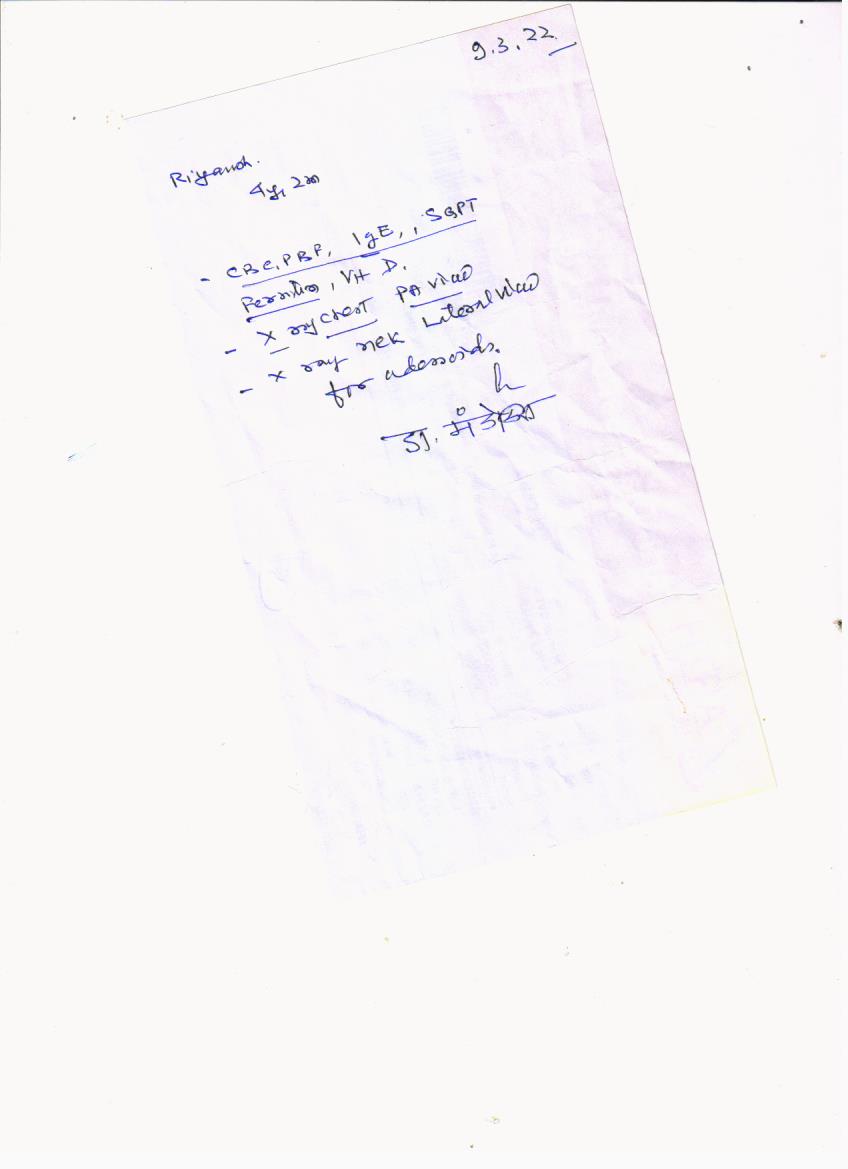 9.3.22
Riyansh.
4y, 2m
- CBC, PBF, IgE, , SGPT
Ferritin, Vit D.
- X ray chest PA view
- X ray nek Lateral view
for adenoids.
डा.